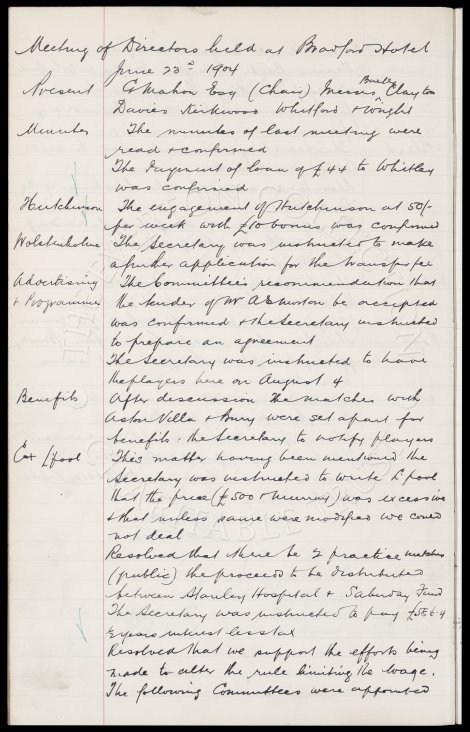 Meeting of Directors held at Bradford Hotel
June 23rd 1904
Present G Mahon Esq (Chair) Messrs Baxter Clayton
Davies Kirkwood Whitford & Wright
Minutes The minutes of last meeting were
read & confirmed
The Payment of loan of £44 to Whitley
was confirmed
Hutchinson The engagement of Hutchinson at 50/-
per week with £10 bonus was confirmed
Wolstenholme The Secretary was instructed to make
a further application for the transfer fee
Advertising The Committee's recommendation that
& Programmes the tender of Mr A E Morton be accepted
was confirmed & the Secretary instructed
to prepare an agreement
The Secretary was instructed to have
the players here on August 4
Benefits After discussion the matches with
Aston Villa & Bury were set apart for
benefits : the Secretary to notify players
L'pool This matter having been mentioned the
Secretary was instructed to write L'pool
that the price (£500 & Murray) was excessive
& that unless same were modified we could
not deal
Resolved that there be 2 practice matches
(public) the proceeds to be distributed
between Stanley Hospital & Saturday Fund
The Secretary was instructed to pay
years interest less tax
Resolved that we support the efforts being
made to alter the rule limiting the wage.
The following Committees were appointed